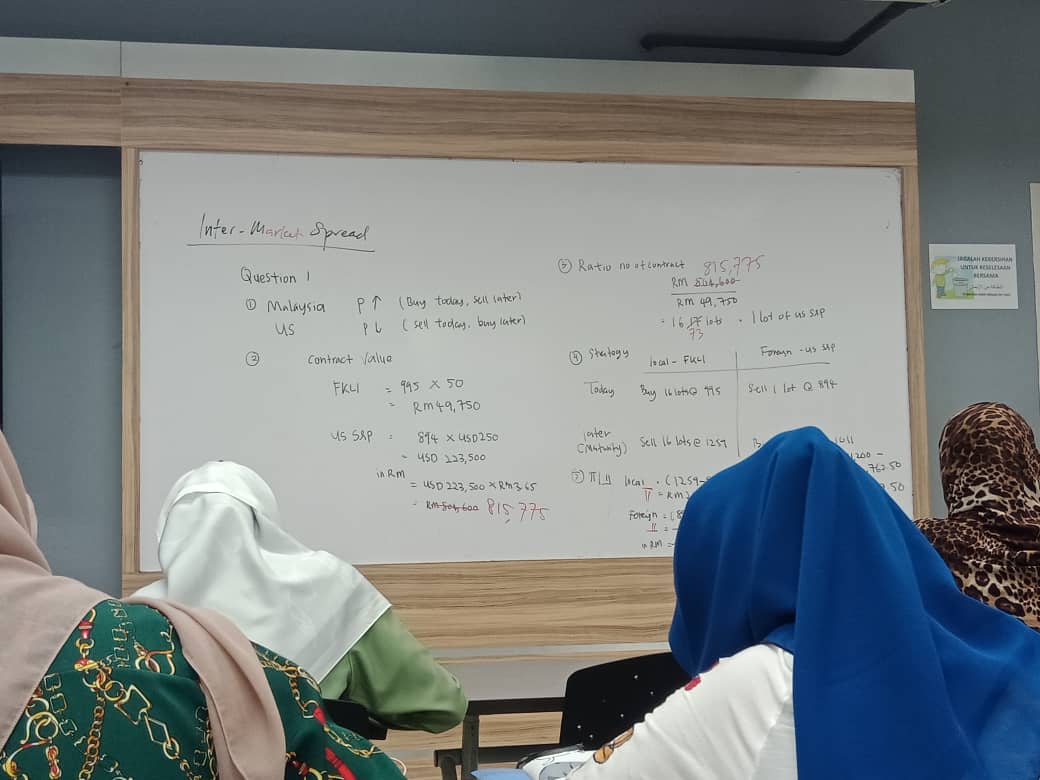 Inter-Market Spread
Question 1
① Malaysia P↑ (Buy today, sell later)
US P↓ (sell today, buy later)
② Contract Value
FKLI = 995 × 50
= RM49,750
US S&P = 894 × USD250
= USD 223,500
in RM
= USD 223,500 × RM3.65
= 815,775
③ Ratio no of contract 815,775
RM
RM 49,750
= 16 lots . 1 lot of US S&P
73
④ Strategy local - FKLI Foreign - US S&P
Today Buy 16 lots @ 995 Sell 1 lot @ 894
later
(Maturity) Sell 16 lots @ 1259
local = (1259-
π = RM
Foreign = (8
in RM =
1200 -
762.50
.50
JAGALAH KEBERSIHAN
UNTUK KESELESAAN
BERSAMA
النظافة من الإيمان